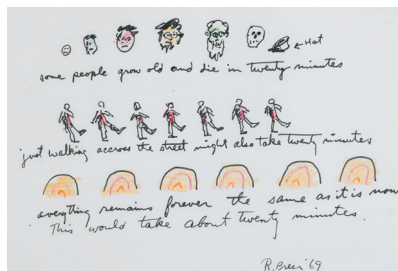 Hat
some people grow old and die in twenty minutes
just walking accross the street might also take twenty minutes
everything remains forever the same as it is now
This would take about twenty minutes.
R. Breer '69